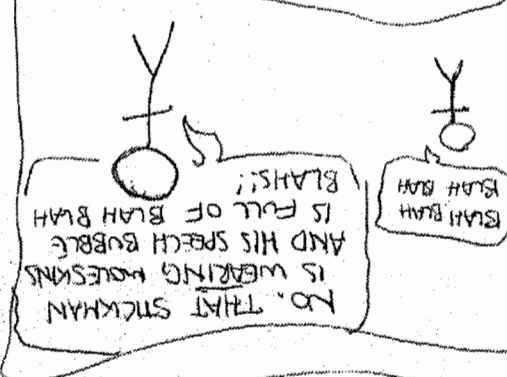 NO. THAT STICKMAN
IS WEARING MOLESKINS
AND HIS SPEECH BUBBLE
IS FULL OF BLAH BLAH
BLAHS!!
BLAH BLAH
BLAH BLAH